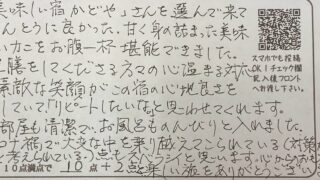 美味しい宿かどや」さんを選んで来て
んとうに良かった。甘く身の詰まった美味
いカニをお腹一杯堪能できました。
膳をしてくださるスマの心温まる対応
素敵な笑顔がこの宿の心地良さを
していて「リピートしたいな」と思わせてくれます。
部屋も清潔で、お風呂ものんびりと入れました。
コロナ禍で大変な中を乗り越えてこられている(対策が
考えられている)点もスバラシイと思います。心からお
10点満点で 10点+2点 しい夜をありがとうござい
スマホでも投稿
OK!チェック欄
記入後フロント
へお渡し下さい